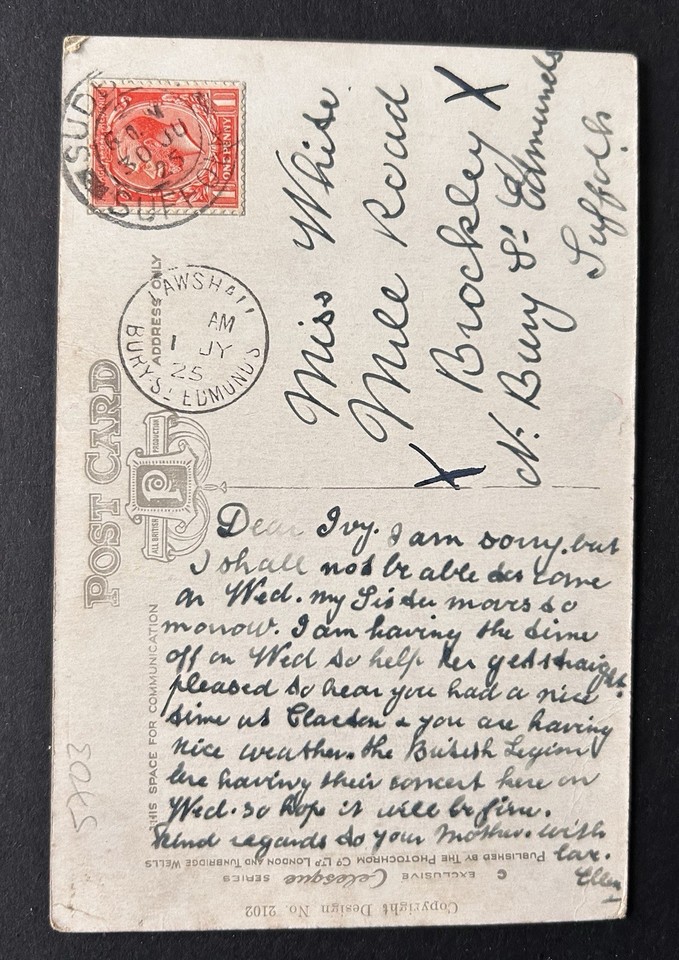 POST CARD
ADDRESS ONLY
ALL BRITISH
PRODUCTION
P
ONE PENNY
SUD
30 JU
25
SUFFOLK
LAWSHALL
AM
1 JY
25
BURY. ST EDMUND'S
Miss White.
Mill Road
X Brockley X
Nr. Bury St. Edmunds
Suffolk
THIS SPACE FOR COMMUNICATION
Dear Ivy. I am sorry. but
I shall not be able to come
on Wed. my Sister moves to
morrow. I am having the time
off on Wed to help her get straight.
pleased to hear you had a nice
time at Clacton & you are having
nice weather. the British Legion
are having their concert here on
Wed. so hope it will be fine.
Kind regards to your Mother. with
love.
Ellen
PUBLISHED BY THE PHOTOCHROM CO. LTD. LONDON AND TUNBRIDGE WELLS
C EXCLUSIVE Celesque SERIES
Copyright Design No. 2102
5703